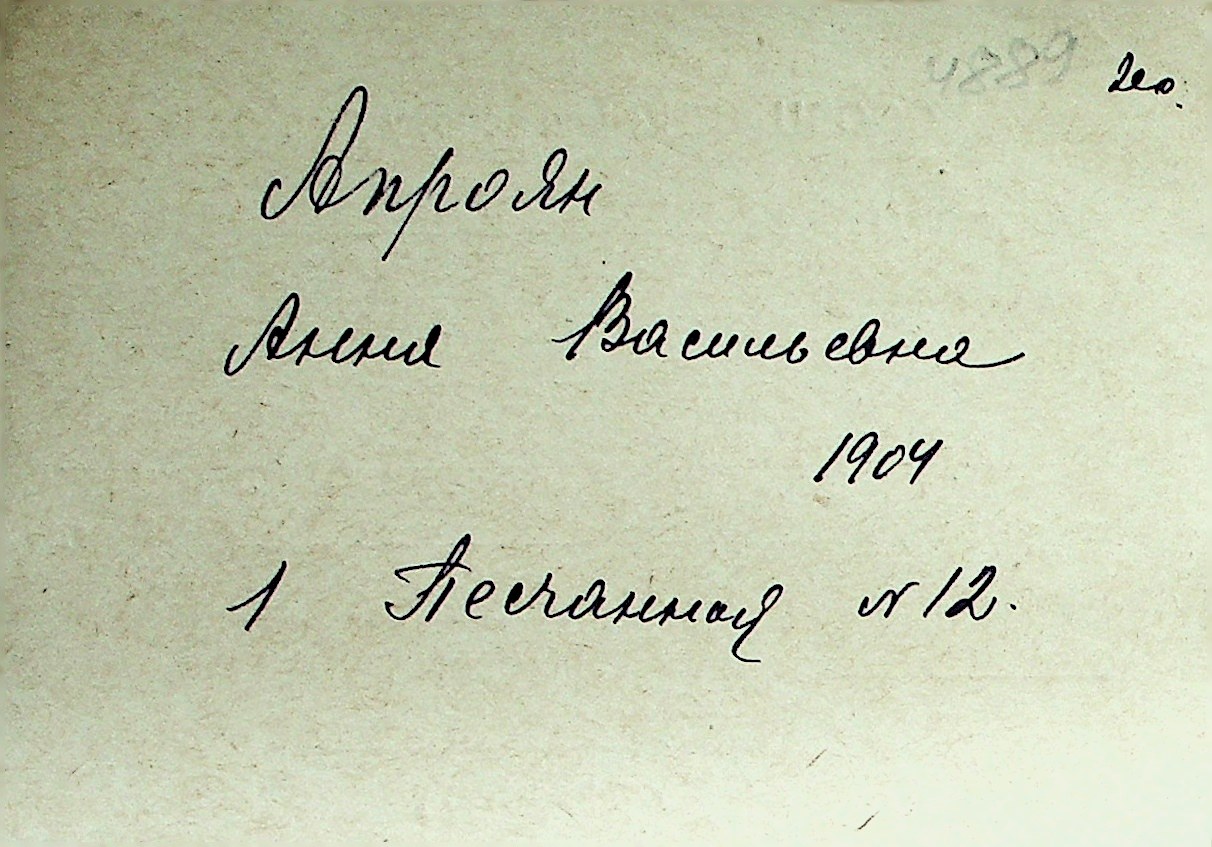 4889
Апроян
Анна Васильевна
1904
1 Песчанная N 12.